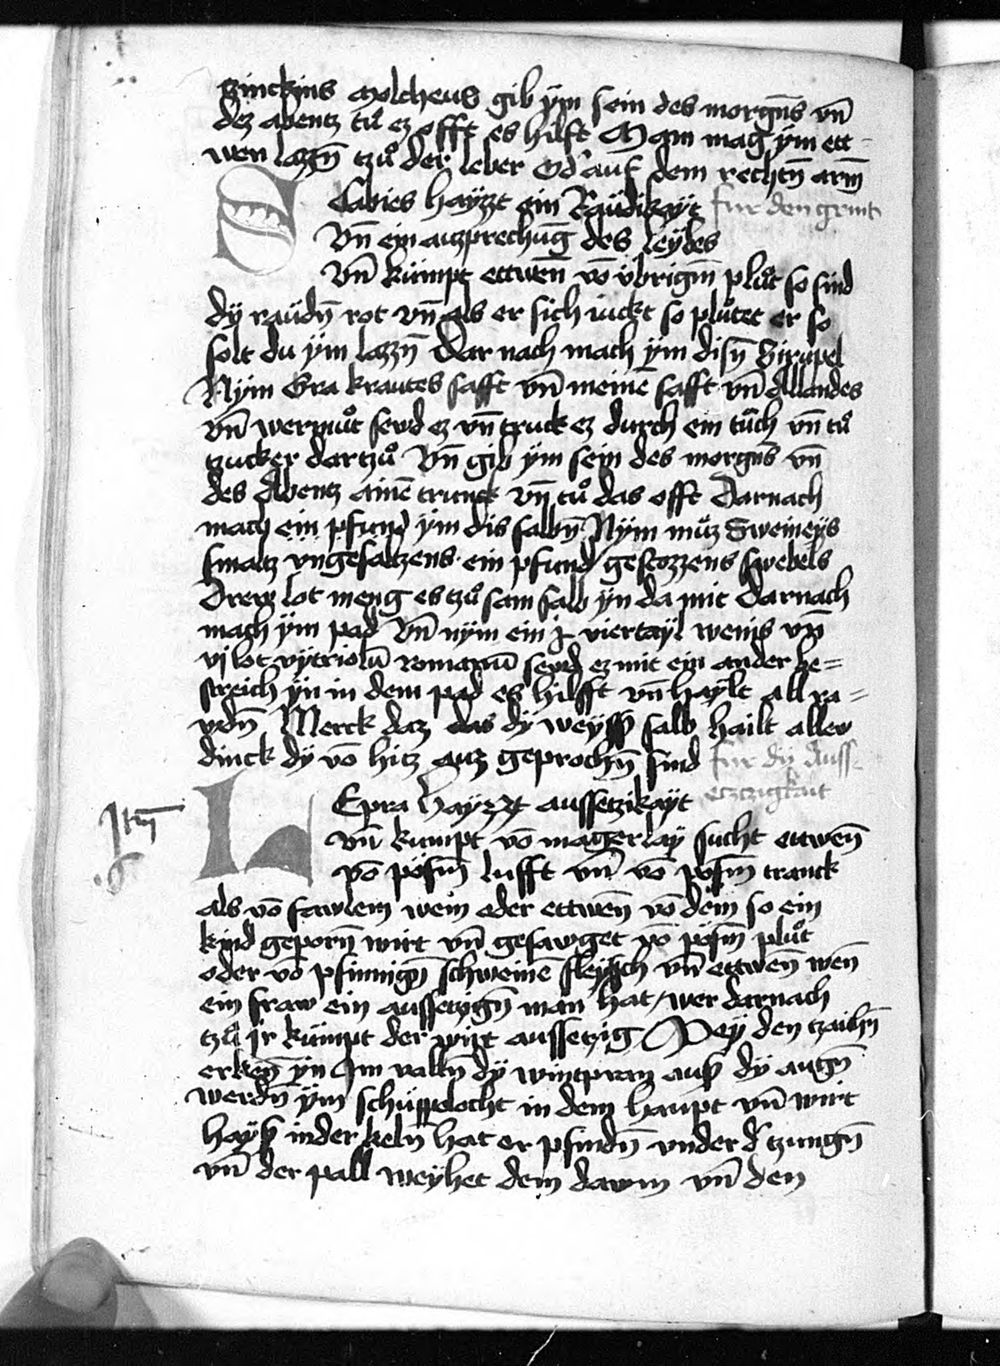 trincktns molchens gib ym sein des morgns vn̄
dez abentz tů ez offt es hilft Man mag ym ett-
wen lazzn̄ tzů der leber Od' auf dem rechtn̄ arm̄
SCabies hayzzt ein Raüdikayt fur den grint
vn̄ ein auzprechūg des leybes
vn̄ kümpt ettwen̄ vō übrigm̄ plůt so sind
dy raüdn̄ rot vn̄ als er sich iuckt so plůtet er so
solt du ym lazzn̄ Dar nach mach ym disn̄ Sirupel
Nym Gra krautes safft vn̄ meinē safft vn̄ Allandes
vn̄ wermůt seud ez vn̄ truck ez durch ein tůch vn̄ tů
tzucker dartzů vn̄ gib ym sein des morgns vn̄
des Abentz ainē trunck vn̄ tů das offt Darnach
mach ein pfund ym dis salbn̄ Nym můz Sweineys
smaltz vngesaltzens ein pfund gestozzens swebels
Drew lot meng es tzů sam salb yn da mit Darnach
mach ym pad vn̄ nym ein j viertayl weins vn̄
vj lot vytriolū romanū seud ez mit ein ander be=
streich yn in dem pad es hilfft vn̄ haylt all ra=
vdn̄ Merck daz das dy weyss salb hailt allew
dinck dy vō hitz auz geprochn̄ sind fur dy Auss-
etzigkait
LEpra hayzzt aussetzikayt
vn̄ kumpt vō magerlay sucht ettwen̄
vō pösm̄ lufft vn̄ vō pösm̄ tranck
Itm̄
als vō fawlem wein oder ettwen̄ vō dem so ein
kind geporn̄ wirt vn̄ gesawget vō pösm̄ plůt
oder vō pfinnign̄ schweinē fleysch vn̄ ettwen̄ wen̄
ein fraw ein aussetzign̄ man hat / wer darnach
tzů ir kümpt der wirt aussetzig Pey den tzaichn̄
erken̄ yn Im valln̄ dy wintpran auss dy augn̄
werdn̄ ym schüsselocht in dem haupt vn̄ wirt
hayss in der keln̄ hat er pfindn̄ vnder d' tzungn̄
vn̄ der pall weyhet dem dawm vn̄ den